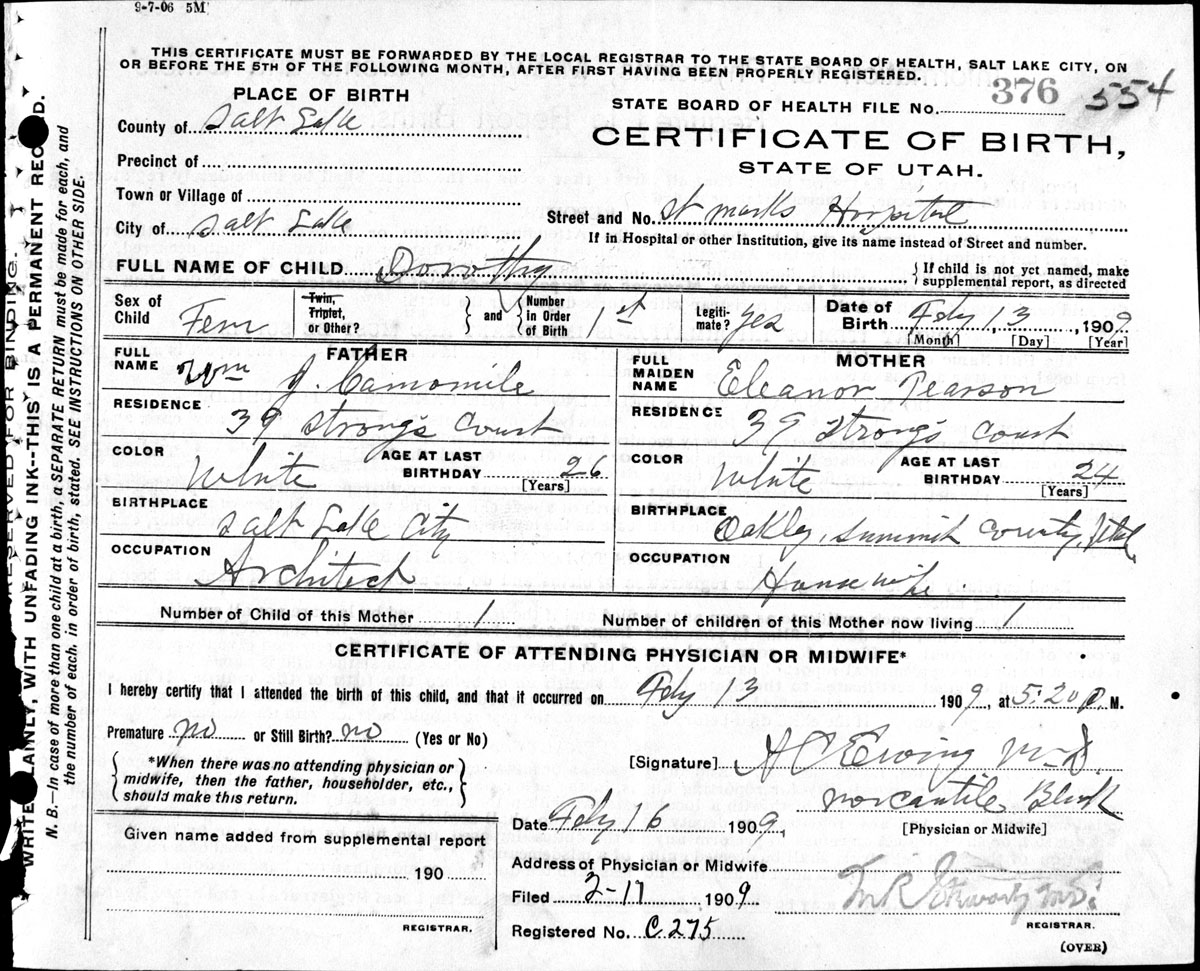 9-7-06 5M
THIS CERTIFICATE MUST BE FORWARDED BY THE LOCAL REGISTRAR TO THE STATE BOARD OF HEALTH, SALT LAKE CITY, ON
OR BEFORE THE 5TH OF THE FOLLOWING MONTH, AFTER FIRST HAVING BEEN PROPERLY REGISTERED.
PLACE OF BIRTH
STATE BOARD OF HEALTH FILE No. 376 554
County of Salt Lake
CERTIFICATE OF BIRTH,
STATE OF UTAH.
Precinct of
Town or Village of
Street and No. St Marks Hospital
City of Salt Lake
If in Hospital or other Institution, give its name instead of Street and number.
FULL NAME OF CHILD Dorothy
If child is not yet named, make
supplemental report, as directed
Sex of Child Fem
Twin, Triplet, or Other?
and Number in Order of Birth 1st
Legiti-mate? Yes
Date of Birth Feby 13, 1909
[Month] [Day] [Year]
FATHER
FULL NAME Wm J. Camomile
RESIDENCE 39 Strong's Court
COLOR White
AGE AT LAST BIRTHDAY 26
[Years]
BIRTHPLACE Salt Lake City
OCCUPATION Architect
MOTHER
FULL MAIDEN NAME Eleanor Pearson
RESIDENCE 39 Strong's Court
COLOR White
AGE AT LAST BIRTHDAY 24
[Years]
BIRTHPLACE Oakley, Summit County, Utah
OCCUPATION Housewife
Number of Child of this Mother 1 Number of children of this Mother now living 1
CERTIFICATE OF ATTENDING PHYSICIAN OR MIDWIFE*
I hereby certify that I attended the birth of this child, and that it occurred on Feby 13 1909, at 5:20 P. M.
Premature no or Still Birth? no (Yes or No)
*When there was no attending physician or
midwife, then the father, householder, etc.,
should make this return.
[Signature] A C Ewing M.D.
Block
[Physician or Midwife]
Date Feby 16 1909,
Given name added from supplemental report
190
REGISTRAR.
Address of Physician or Midwife
Filed 2-17 1909
REGISTRAR.
Registered No. C. 275
(OVER)
RESERVED FOR BINDING.
WRITE PLAINLY, WITH UNFADING INK--THIS IS A PERMANENT RECORD.
N. B.--In case of more than one child at a birth, a SEPARATE RETURN must be made for each, and
the number of each, in order of birth, stated. SEE INSTRUCTIONS ON OTHER SIDE.